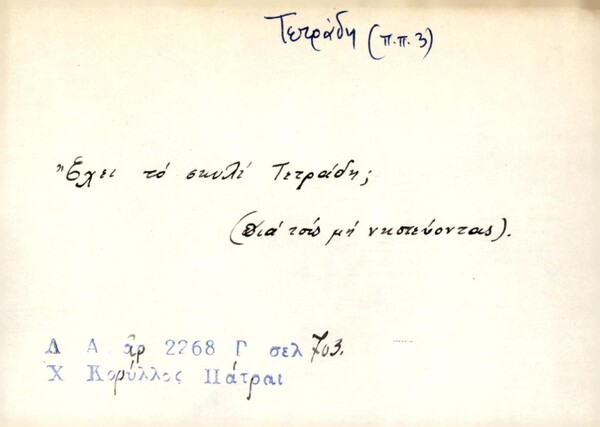 Τετράδη (π.π. 3)
Ἔχει τό σκυλί Τετράδη;
(Διά τούς μή νηστεύοντας).
Λ Α ἀρ 2268 Γ σελ 703.
Χ Κορύλλος Πάτραι